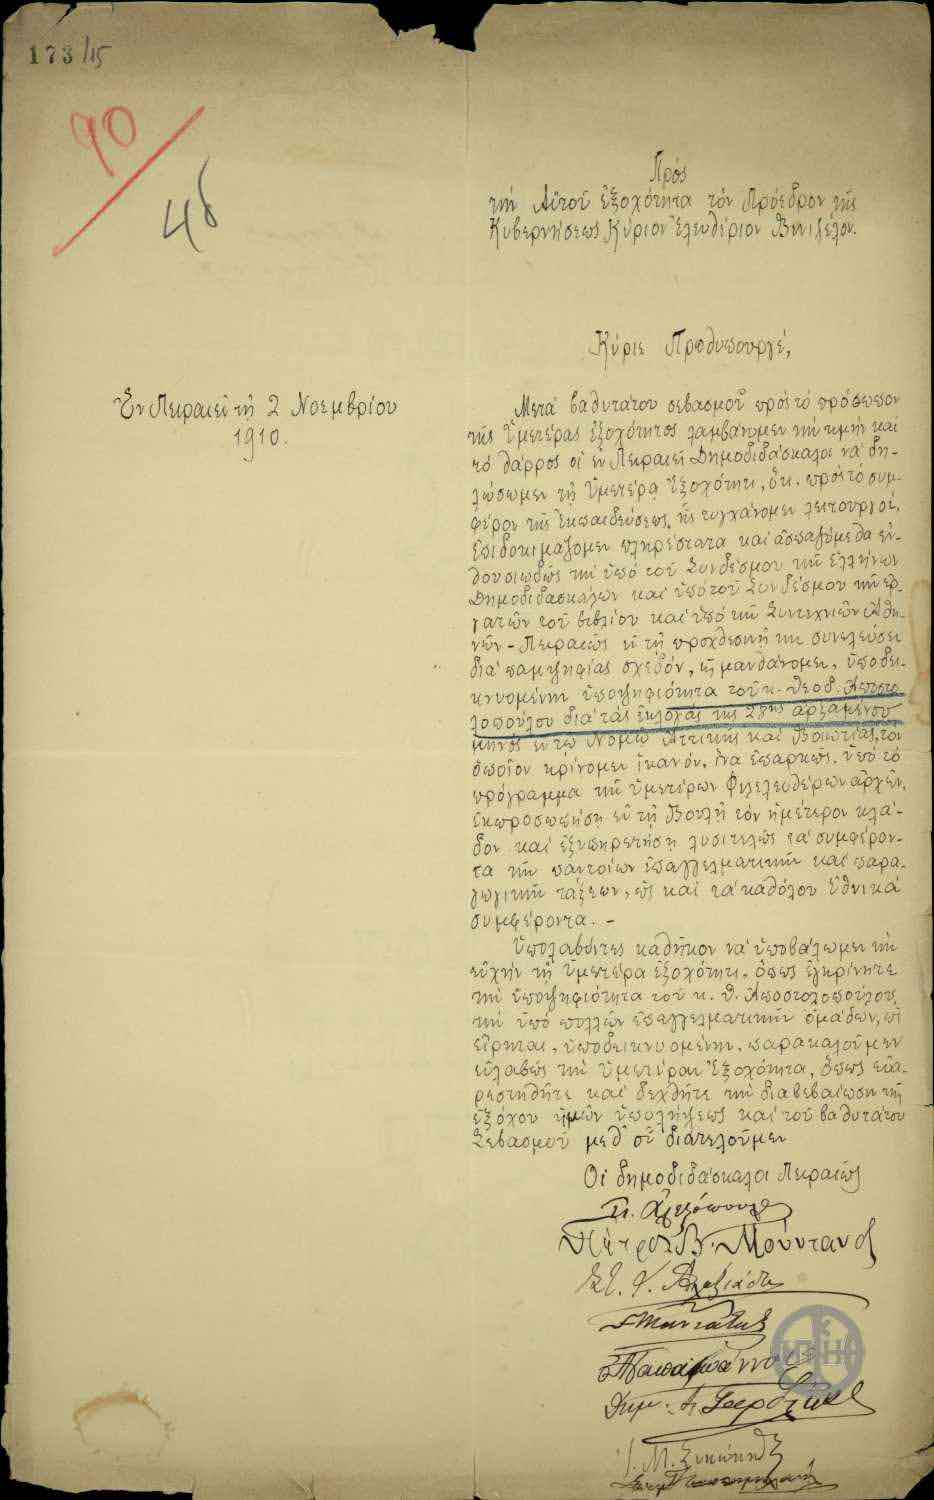 173/15
90
48
Πρὸς
τὴν Αὐτοῦ Ἐξοχότητα τὸν Πρόεδρον τῆς
Κυβερνήσεως Κύριον Ἐλευθέριον Βενιζέλον.
Κύριε Πρωθυπουργέ,
Ἐν Πειραιεῖ τῇ 2 Νοεμβρίου
1910.
Μετὰ βαθυτάτου σεβασμοῦ πρὸς τὸ πρόσωπον
τῆς Ὑμετέρας Ἐξοχότητος λαμβάνομεν τὴν τιμὴν καὶ
τὸ θάρρος οἱ ἐν Πειραιεῖ Δημοδιδάσκαλοι νὰ δη-
λώσωμεν τῇ Ὑμετέρᾳ Ἐξοχότητι, ὅτι πρὸς τὸ συμ-
φέρον τῆς Ἐκπαιδεύσεως, ἧς τυγχάνομεν λειτουργοί,
ἐπιδοκιμάζομεν πληρέστατα καὶ ἀσπαζόμεθα ἐν-
θουσιωδῶς τὴν ὑπὸ τοῦ Συνδέσμου τῶν Ἑλλήνων
Δημοδιδασκάλων καὶ ὑπὸ τοῦ Συνδέσμου τῶν ἐρ-
γατῶν τοῦ βιβλίου καὶ ὑπὸ τῶν Συντεχνιῶν Ἀθη-
νῶν - Πειραιῶς ἐν τῇ προχθεσινῇ των συνελεύσει
διὰ παμψηφίας σχεδόν, ὡς μανθάνομεν, ὑποδει-
κνυομένην ὑποψηφιότητα τοῦ κ. Θεοδ. Ἀποστο
λοπούλου διὰ τὰς ἐκλογὰς τῆς 28ης ἀρξαμένου
μηνὸς ἐν τῷ Νομῷ Ἀττικῆς καὶ Βοιωτίας, τὸν
ὁποῖον κρίνομεν ἱκανόν, ἵνα ἐπαρκῶς ὑπὸ τὸ
πρόγραμμα τῶν ὑμετέρων Φιλελευθέρων ἀρχῶν,
ἐκπροσωπήσῃ ἐν τῇ Βουλῇ τὸν ἡμέτερον κλά-
δον καὶ ἐξυπηρετήσῃ λυσιτελῶς τὰ συμφέρον-
τα τῶν παντοίων ἐπαγγελματικῶν καὶ παρα-
γωγικῶν τάξεων, ὡς καὶ τὰ καθόλου Ἐθνικὰ
συμφέροντα. -
Ὑπολαβόντες καθῆκον νὰ ὑποβάλωμεν τὴν
εὐχὴν τῇ Ὑμετέρᾳ Ἐξοχότητι, ὅπως ἐγκρίνητε
τὴν ὑποψηφιότητα τοῦ κ. Θ. Ἀποστολοπούλου,
τὴν ὑπὸ πολλῶν ἐπαγγελματικῶν ὁμάδων, ὡς
εἴρηται, ὑποδεικνυομένην, παρακαλοῦμεν
εὐλαβῶς τὴν Ὑμετέραν Ἐξοχότητα, ὅπως εὐα-
ρεστηθῆτε καὶ δεχθῆτε τὴν διαβεβαίωσιν τῆς
ἐξόχου ἡμῶν ὑπολήψεως καὶ τοῦ βαθυτάτου
Σεβασμοῦ μεθ' οὗ διατελοῦμεν
Οἱ δημοδιδάσκαλοι Πειραιῶς
Π. Ἀλεξόπουλος
Πέτρος Β. Μουντανος
Ἀλεξιάδης
Παπαϊωάννου
Δημ.
Μ.
ΙΠΗ